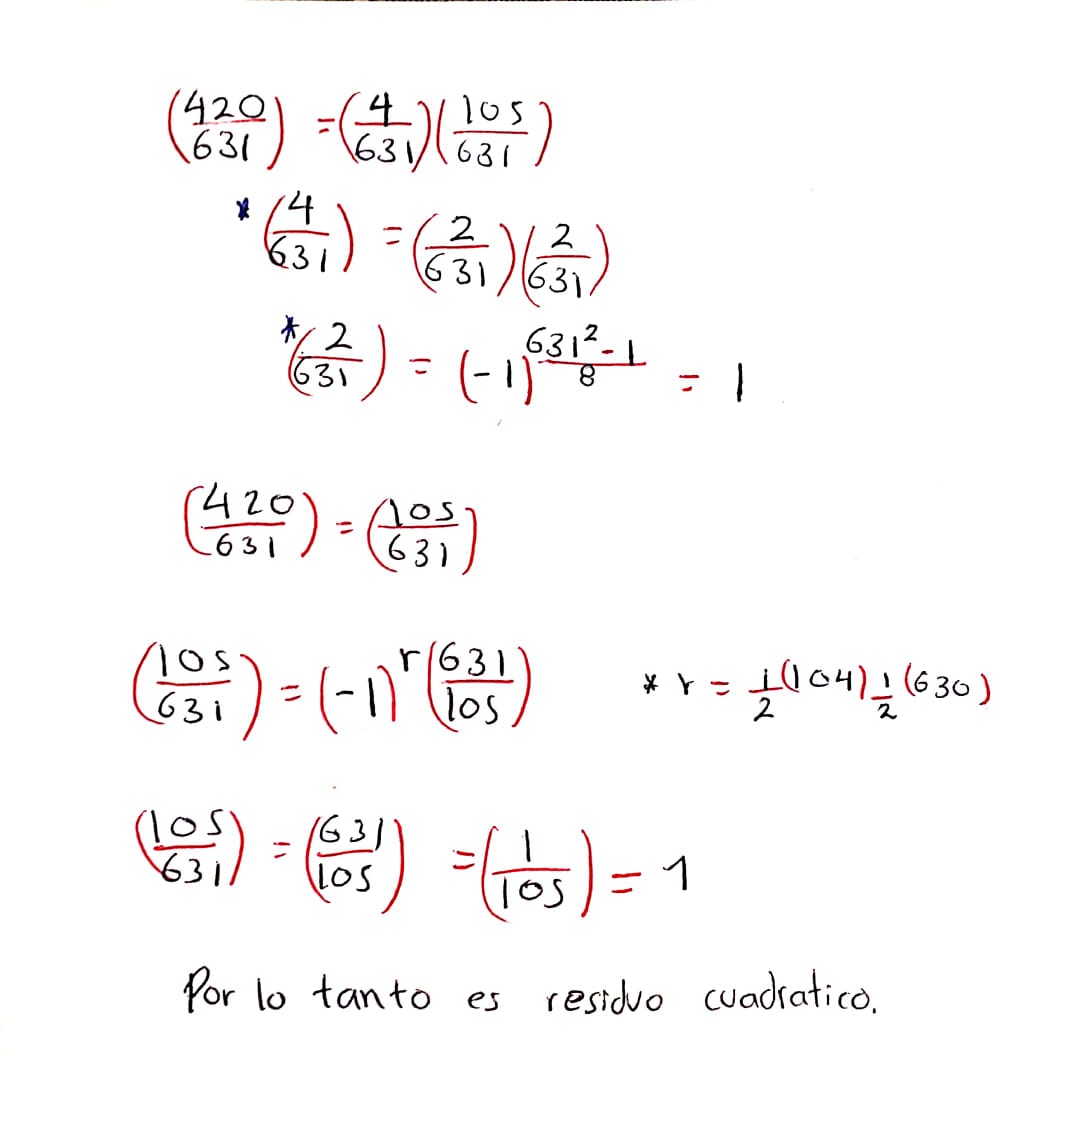 (420/631) = (4/631)(105/631)
* (4/631) = (2/631)(2/631)
* (2/631) = (-1)^((631²-1)/8) = 1
(420/631) = (105/631)
(105/631) = (-1)^r (631/105) * r = 1/2 (104) 1/2 (630)
(105/631) = (631/105) = (1/105) = 1
Por lo tanto es residuo cuadratico.